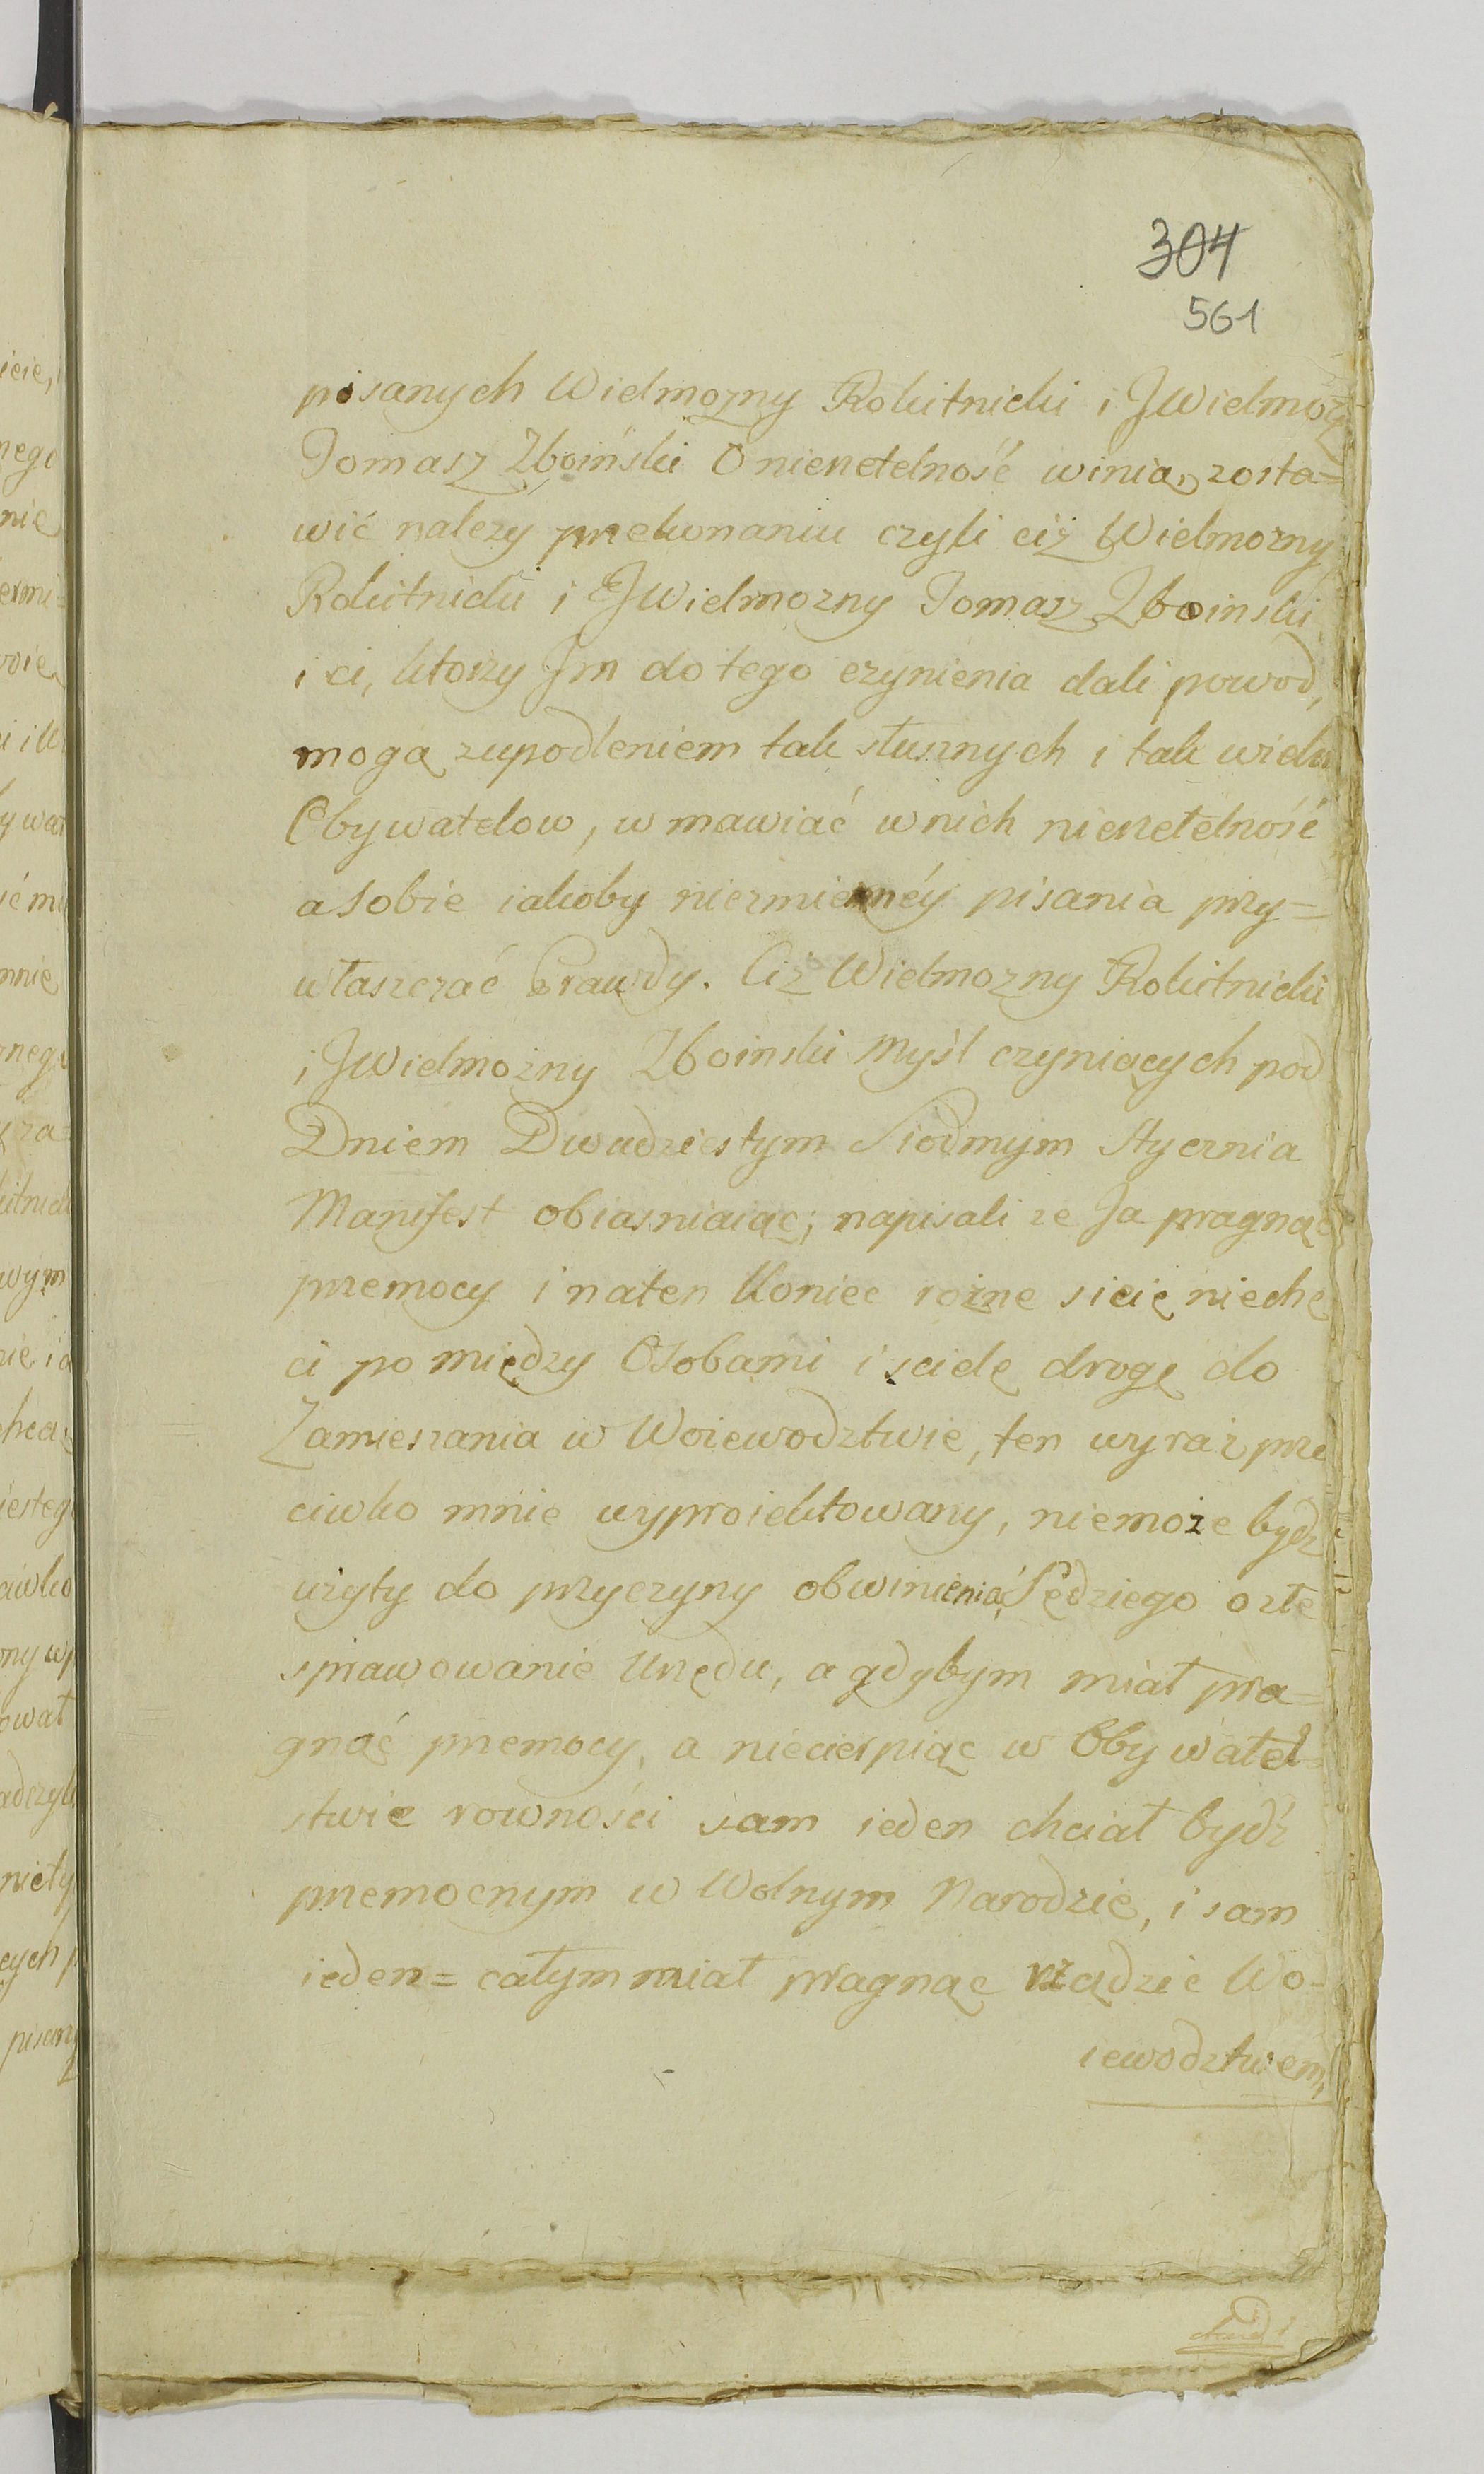 304
561
pisanych Wielmozny Rokitnicki i JWielmoż
Tomasz Zboiński O nierzetelność winią, zosta=
wić nalezy przekonaniu czyli ciż Wielmozny
Rokitnicki i JWielmozny Tomasz Zboinski
i ci, ktorzy Jm do tego czynienia dali powod,
mogą zupodleniem tak słusznych i tak wielu
Obywatelow, w mawiać wnich nierzetelność
a sobie iakoby niezmienney pisania przy=
właszczać Prawdy. Ciż Wielmozny Rokitnicki
i JWielmożny Zboinski Myśl czyniących pod
Dniem Dwudziestym Siodmym Stycznia
Manifest obiasniaiąc; napisali ze Ja pragnąc
przemocy i naten Koniec rożne sieię niechę
ci po między Osobami i scielę drogę do
Zamieszania w Woiewodztwie, ten wyraz prze
ciwko mnie wyproiektowany, niemoże bydz
wzięty do przyczyny obwinienia Sędziego ozłe
sprawowanie Urzędu, a gdybym miał pra=
gnąć przemocy, a niecierpiąc w Obywatel=
stwie rowności sam ieden chciał bydź
przemocnym w Wolnym Narodzie, i sam
ieden= całym miał pragnąc rządzić Wo-
iewodztwem,